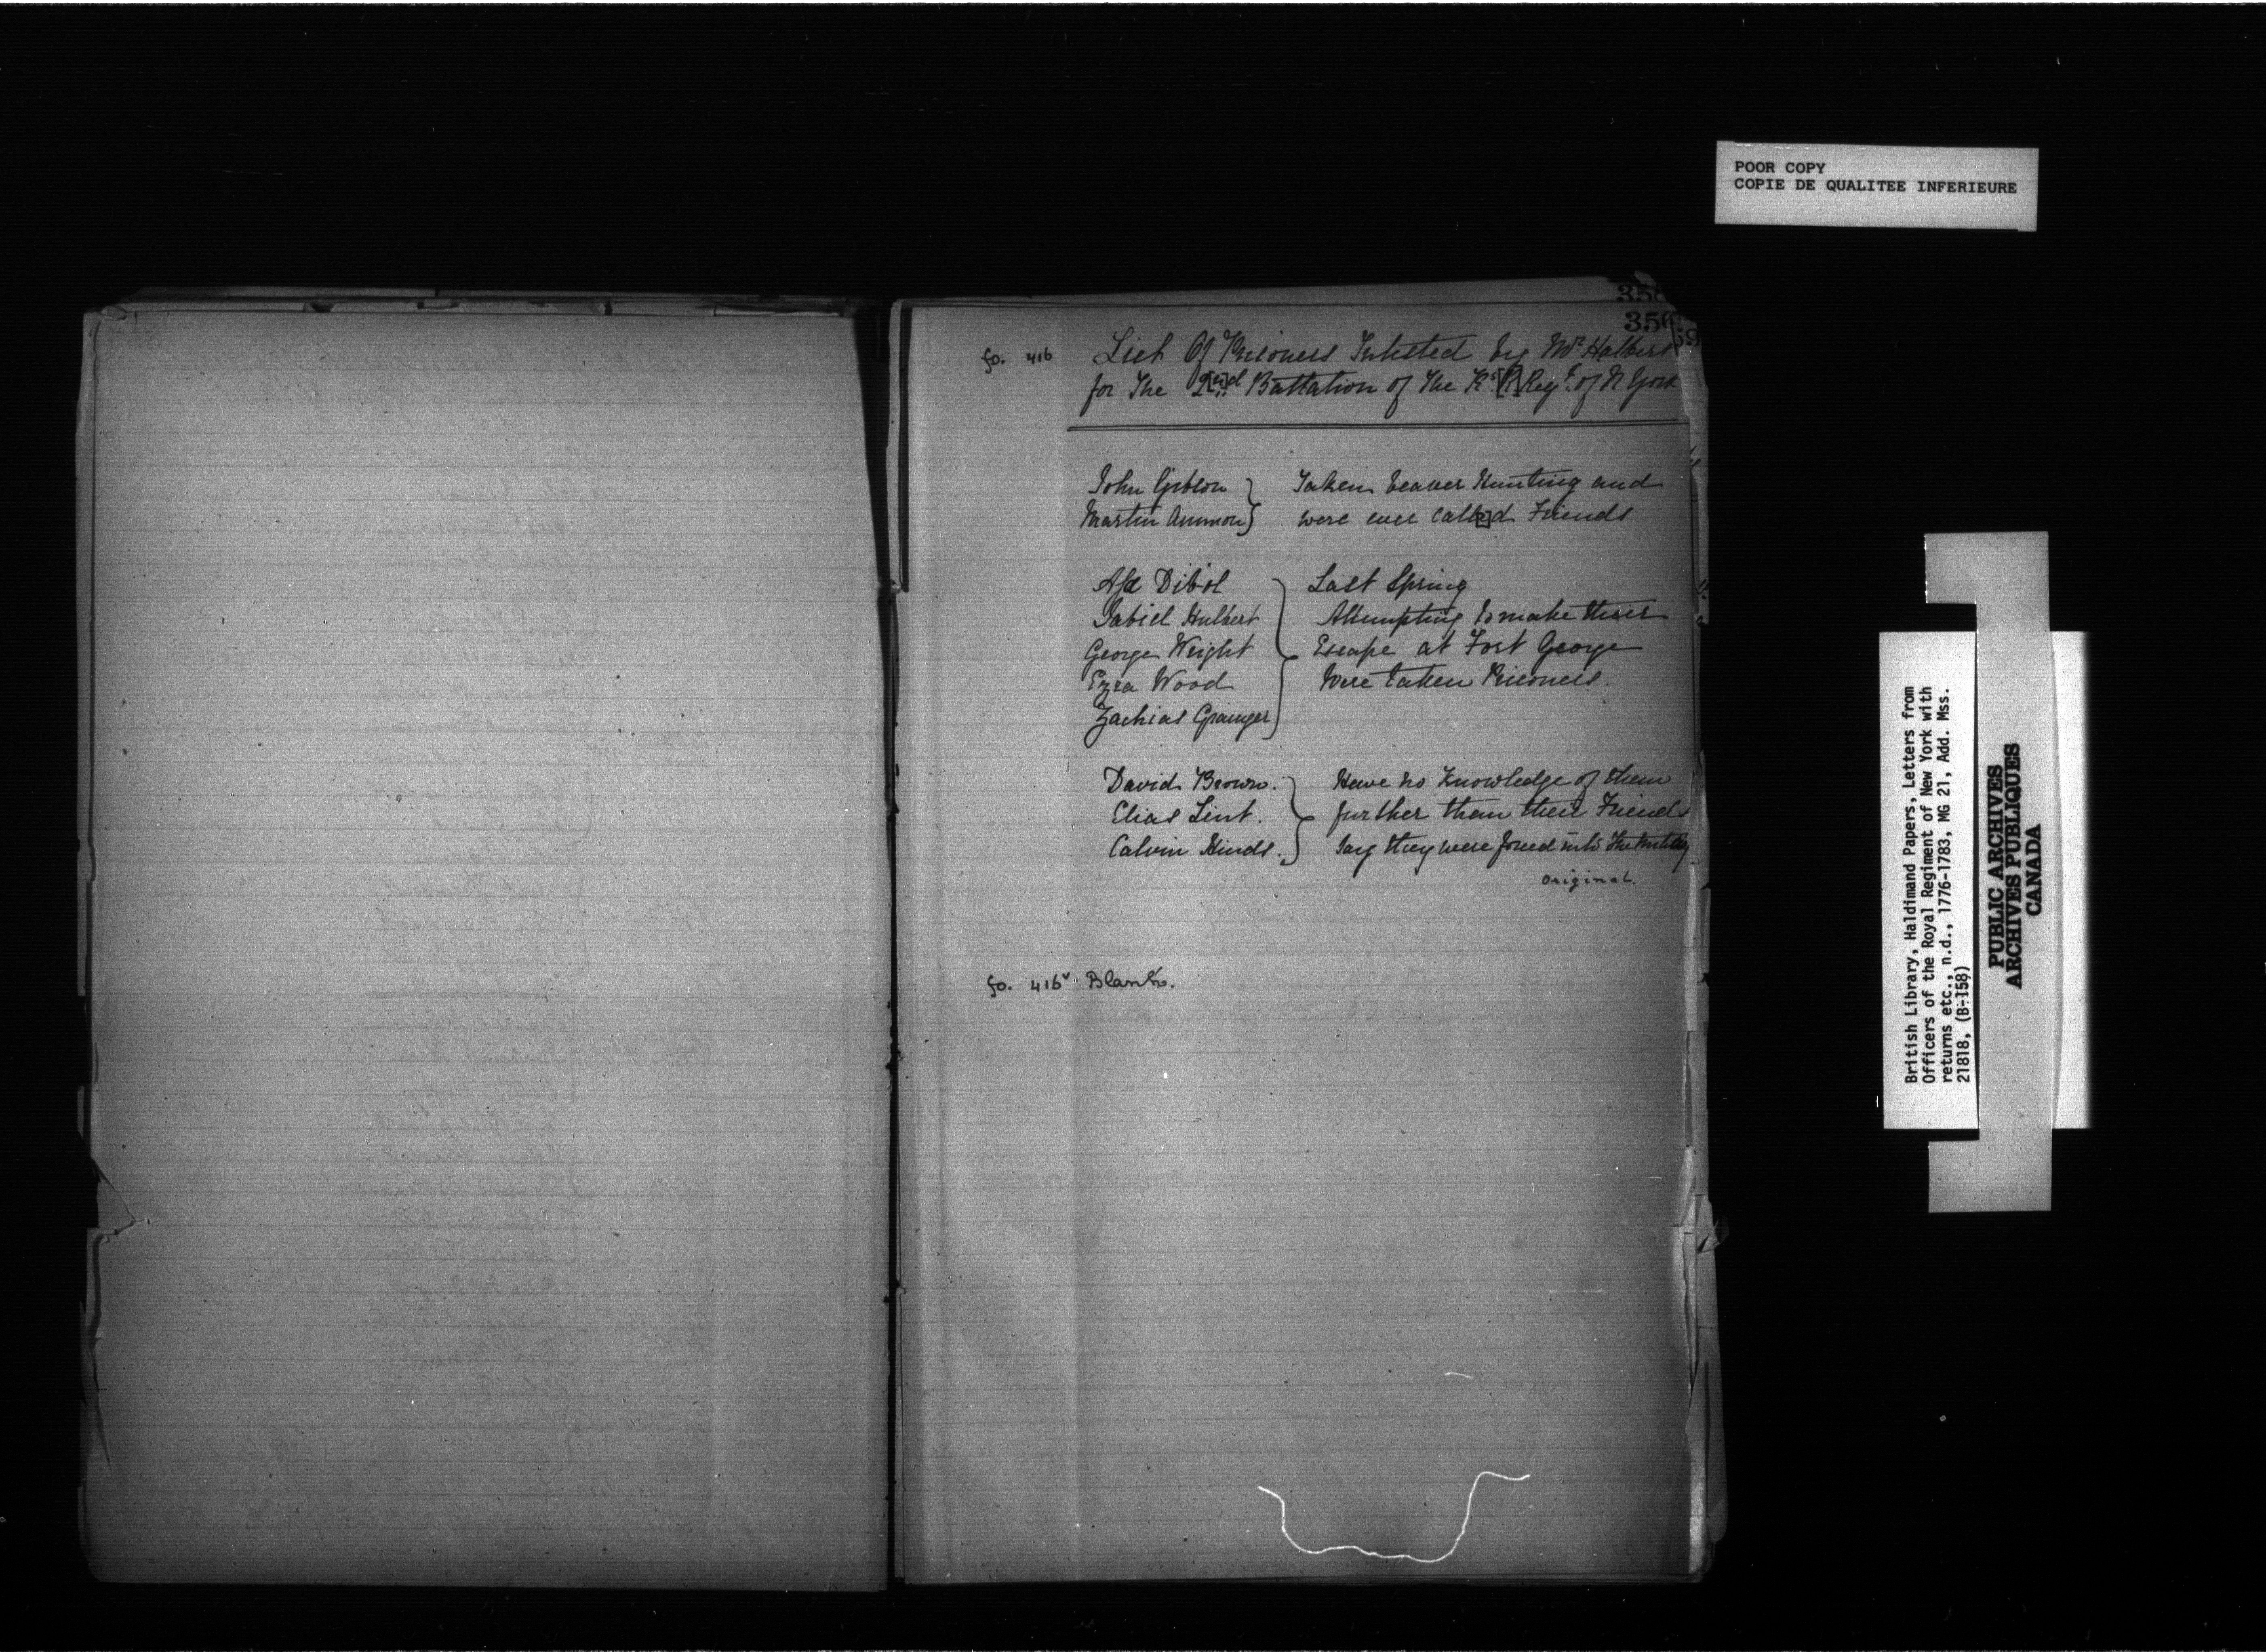 POOR COPY
COPIE DE QUALITEE INFERIEURE
fo. 416 List Of Prisoners Inlisted by Mr. Halbert
for The 2[n]d Battalion of The Ks. [R] Regt. of N York
John Gibson } Taken beaver Hunting and
Martin Ammon } were ever call[e]d Friends
Asa Dibol } Last Spring
Gabiel Hulbert Attempting to make their
George Wright Escape at Fort George
Ezra Wood Were taken Prisoners.
Zachias Granger
David Brown. } Have no Knowledge of them
Elias Lint. further than their Friends
Calvin Hinds. Say they were forced into The
original.
fo. 416v Blank.
British Library, Haldimand Papers, Letters from
Officers of the Royal Regiment of New York with
returns etc., n.d., 1776-1783, MG 21, Add. Mss.
21818, (B-158)
PUBLIC ARCHIVES
ARCHIVES PUBLIQUES
CANADA